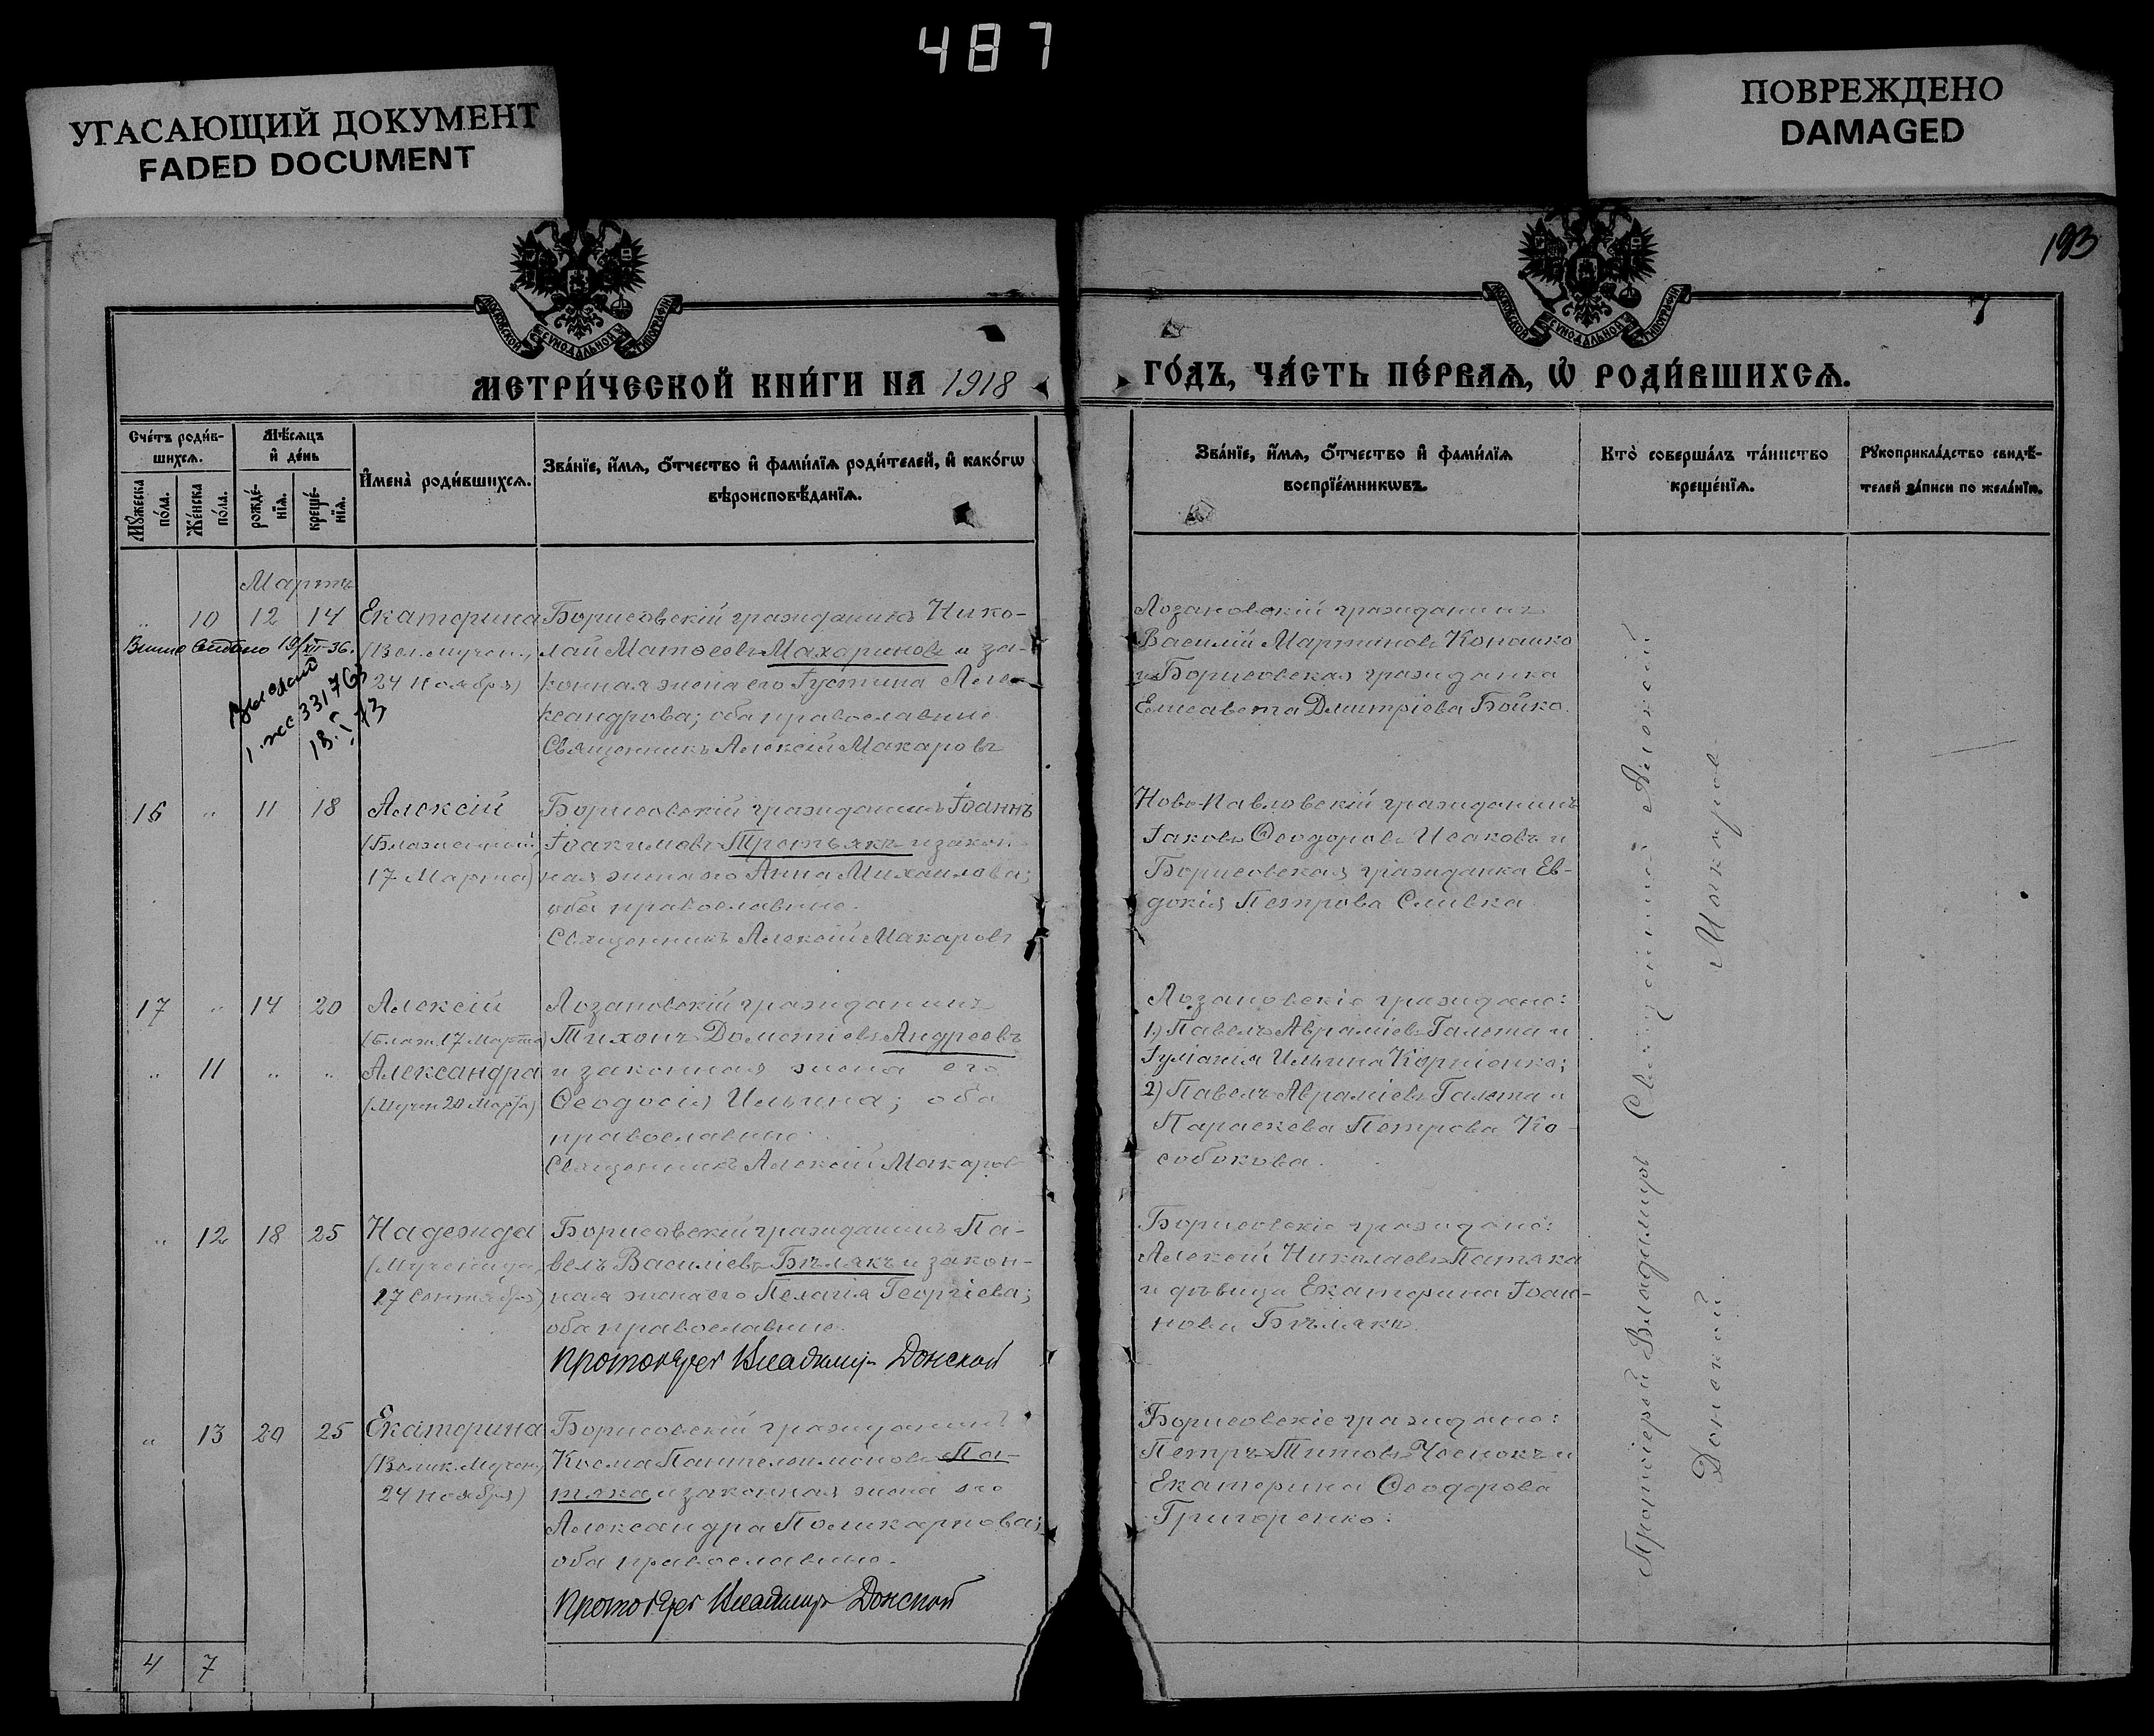 487
УГАСАЮЩИЙ ДОКУМЕНТ
FADED DOCUMENT
ПОВРЕЖДЕНО
DAMAGED
193
7
МОСКОВСКОЙ СѴНОДАЛЬНОЙ ТИПОГРАФІИ
МОСКОВСКОЙ СѴНОДАЛЬНОЙ ТИПОГРАФІИ
МЕТРИ́ЧЕСКОЙ КНИ́ГИ НА 1918
ГО́ДЪ, ЧА́СТЬ ПЕ́РВАѦ, Ѡ҆ РОДИ́ВШИХСѦ.
Сче́тъ роди́в-
шихсѧ.
Мꙋ́жеска по́ла.
Же́нска по́ла.
Мѣ́сѧцъ
и҆ де́нь
рожде́-
нїѧ.
креще́-
нїѧ.
И҆мена̀ роди́вшихсѧ.
Зва́нїе, и҆́мѧ, ѻ҆́тчество и҆ фами́лїѧ роди́телей, и҆ како́гѡ
вѣроисповѣ́данїѧ.
Зва́нїе, и҆́мѧ, ѻ҆́тчество и҆ фами́лїѧ
воспрїе́мникѡвъ.
Кто̀ соверша́лъ та́инство
креще́нїѧ.
Рꙋкоприкла́дство свидѣ́-
телей за́писи по жела́нїю.
Мартъ
„ 10 12 14 Екатерина
(Вел. мучен.,
24 Ноября)
Борисовскій гражданинъ Нико-
лай Матѳеевъ Махариновъ и за-
конная жена его Іустина Але-
ксандрова; оба православные.
Священникъ Алексій Макаровъ
Лозановскій гражданинъ
Василій Мартиновъ Конашко
и Борисовская гражданка
Елисавета Димитріева Бойко.
19/XII-36.
331763
18.
16 „ 11 18 Алексій
(Блаженный,
17 Марта)
Борисовскій гражданинъ Іоаннъ
Іоакимовъ Третьякъ и закон-
ная жена его Анна Михаилова;
оба православные.
Священникъ Алексій Макаровъ
Ново-Павловскій гражданинъ
Іаковъ Ѳеодоровъ Исаковъ и
Борисовская гражданка Ев-
докія Петрова Сливка
17 „ 14 20 Алексій
(Блаж. 17 Марта)
„ 11 „ „ Александра
(Мучен 20 Марта)
Лозановскій гражданинъ
Тихонъ Дометіевъ Андреевъ
и законная жена его
Ѳеодосія Ильина; оба
православные.
Священникъ Алексій Макаровъ
Лозановскіе граждане:
1) Павелъ Авраміевъ Галета и
Іуліанія Ильина Корніенко;
2) Павелъ Авраміевъ Галета и
Параскева Петрова Ко-
собокова.
„ 12 18 25 Надежда
(Мученица,
17 Сентября)
Борисовскій гражданинъ Па-
велъ Василіевъ Бѣлякъ и закон-
ная жена его Пелагія Георгіева;
оба православные.
Протоіерей Владимиръ Донской
Борисовскіе граждане:
Алексій Николаевъ Патяка
и дѣвица Екатерина Іоан-
нова Бѣлякъ.
„ 13 20 25 Екатерина
(Велик. Мучен.,
24 ноября)
Борисовскій гражданинъ
Косма Пантелеимоновъ Па-
тяка и законная жена его
Александра Поликарпова;
оба православные.
Протоіерей Владимиръ Донской
Борисовскіе граждане:
Петръ Титовъ Чоснокъ и
Екатерина Ѳеодорова
Григоренко.
Священникъ Алексій
Макаровъ
Протоіерей Владимиръ
Донской
4 7